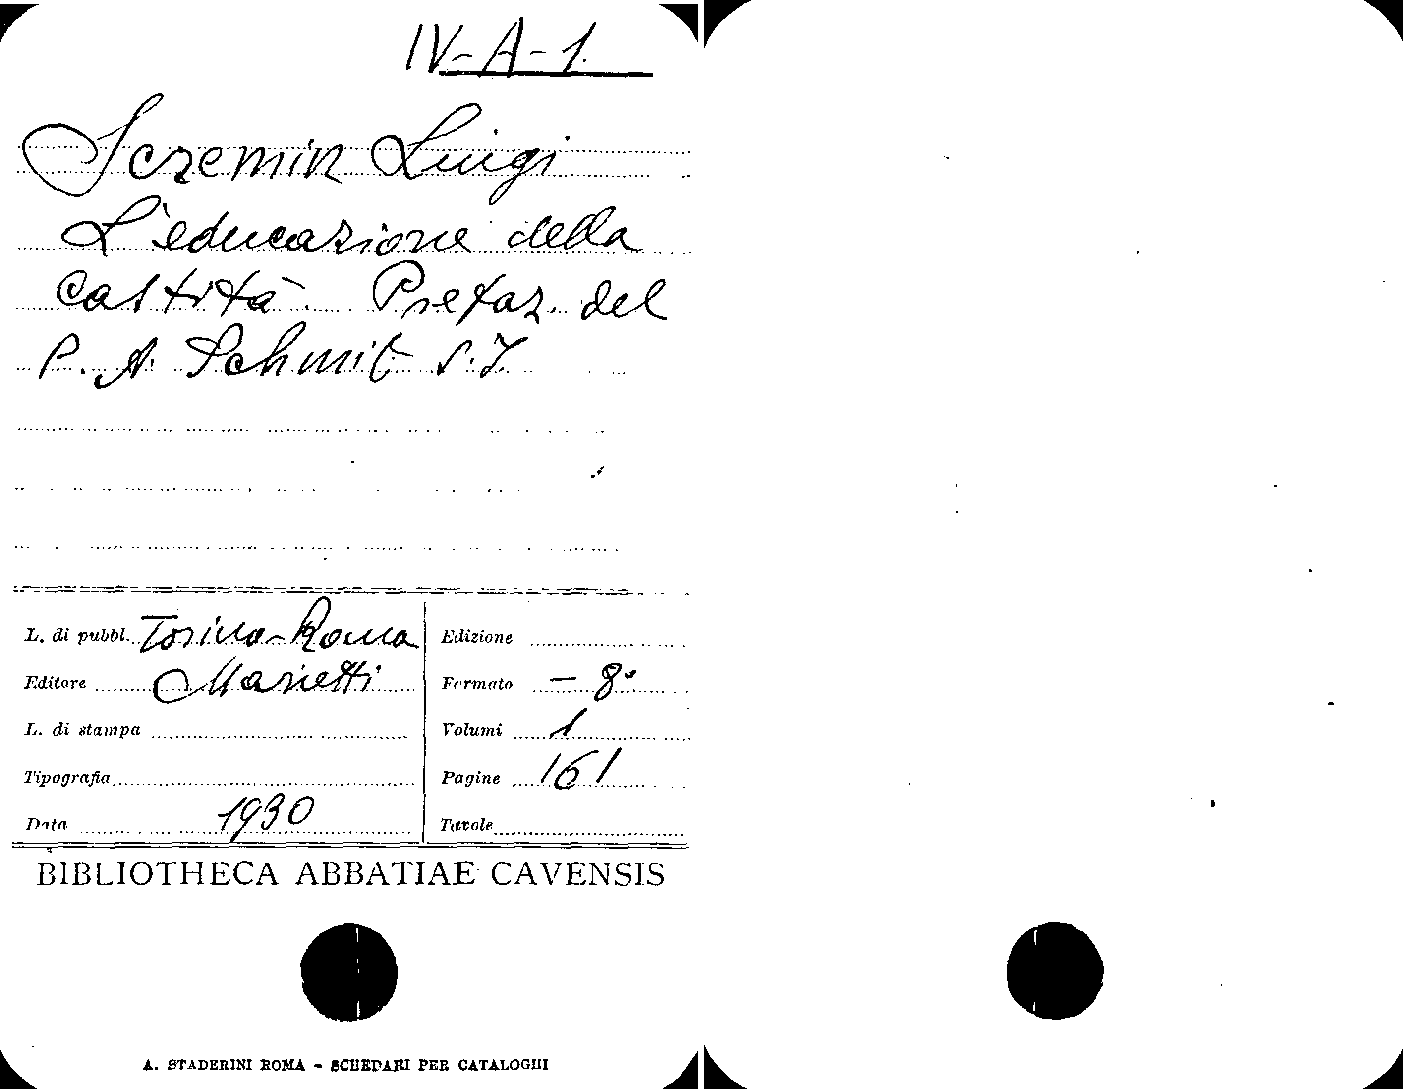 IV-A-1.
Scremin Luigi
L'educazione della
castità. Prefaz. del
P. A. Schmit S.J.
L. di pubbl. Torino-Roma
Editore Marietti
L. di stampa
Tipografia
Data 1930
Edizione
Formato – 8°
Volumi 1
Pagine 161
Tavole
BIBLIOTHECA ABBATIAE CAVENSIS
A. STADERINI ROMA - SCHEDARI PER CATALOGHI